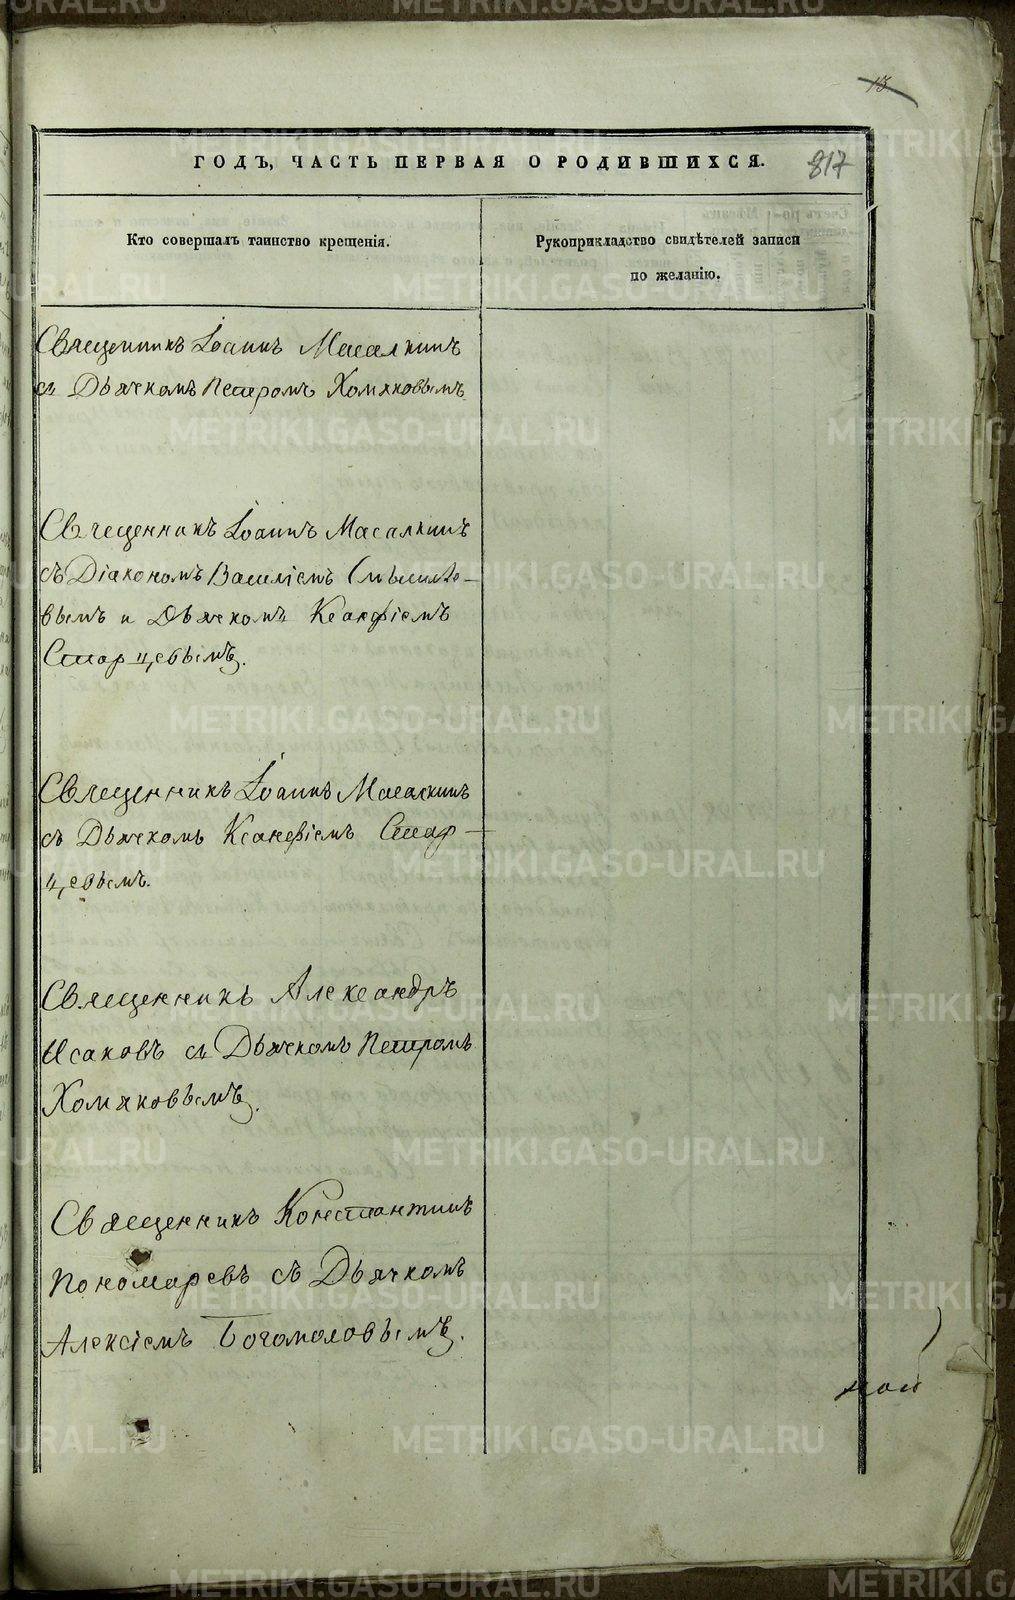 13
ГОДЪ, ЧАСТЬ ПЕРВАЯ О РОДИВШИХСЯ.
817
Кто совершалъ таинство крещенія.
Рукоприкладство свидѣтелей записи
по желанію.
Священникъ Іоаннъ Масалкинъ
съ Дьячкомъ Петромъ Хомяковымъ
Священникъ Іоаннъ Масалкинъ
съ Діакономъ Василіемъ
вымъ и Дьячкомъ Ксанфіемъ
Старцевымъ.
Священникъ Іоаннъ Масалкинъ
съ Дьячкомъ Ксанфіемъ Стар-
цевымъ.
Священникъ Александръ
Исаковъ съ Дьячкомъ Петромъ
Хомяковымъ.
Священникъ Константинъ
Пономаревъ съ Дьячкомъ
Алексіемъ Богомоловымъ.
METRIKI.GASO-URAL.RU